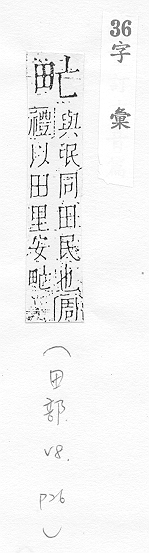 36
字彙
甿
與氓同田民也周
禮以田里安甿
(田部 V8. P26)